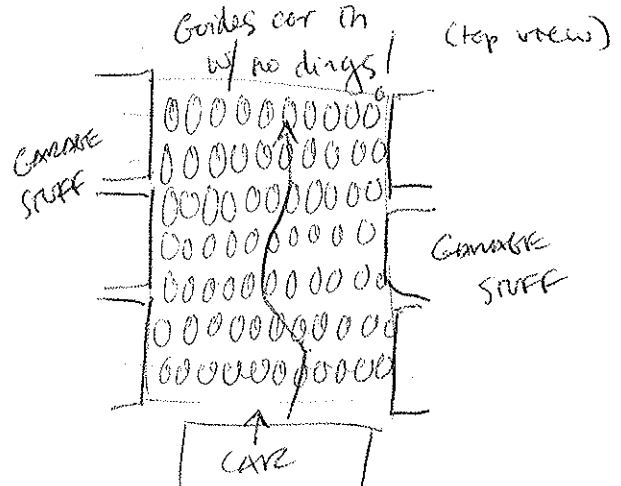 Guides car in
w/ no dings!
(top view)
GARAGE
STUFF
GARAGE
STUFF
CAR